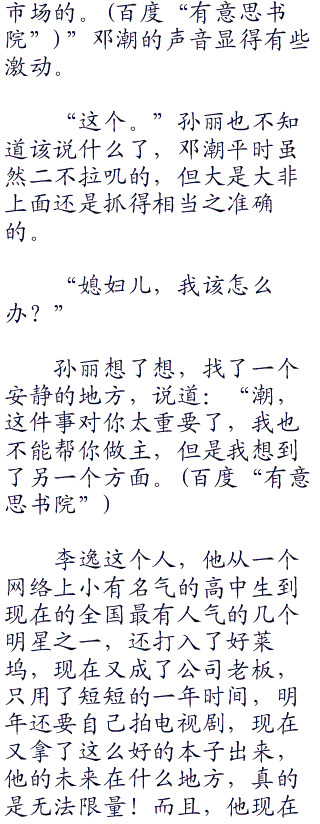 市场的。(百度“有意思书
院”)”邓潮的声音显得有些
激动。
“这个。”孙丽也不知
道该说什么了，邓潮平时虽
然二不拉叽的，但大是大非
上面还是抓得相当之准确
的。
“媳妇儿，我该怎么
办？”
孙丽想了想，找了一个
安静的地方，说道：“潮，
这件事对你太重要了，我也
不能帮你做主，但是我想到
了另一个方面。(百度“有意
思书院”)
李逸这个人，他从一个
网络上小有名气的高中生到
现在的全国最有人气的几个
明星之一，还打入了好莱
坞，现在又成了公司老板，
只用了短短的一年时间，明
年还要自己拍电视剧，现在
又拿了这么好的本子出来，
他的未来在什么地方，真的
是无法限量！而且，他现在